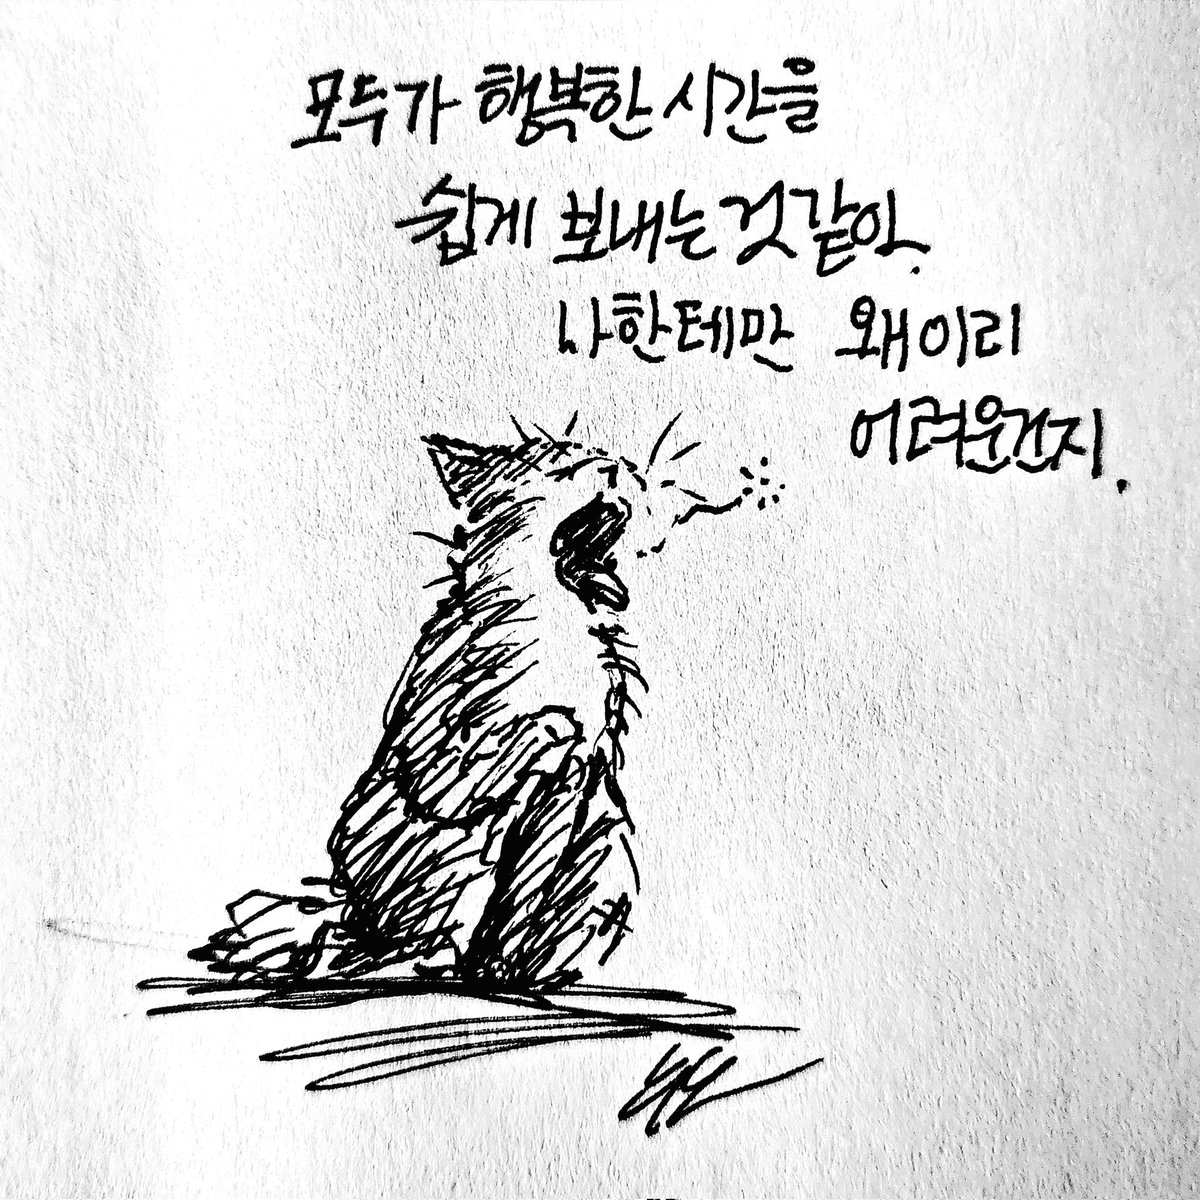 모두가 행복한 시간을
쉽게 보내는 것 같아.
나한테만 왜 이리
어려운건지.